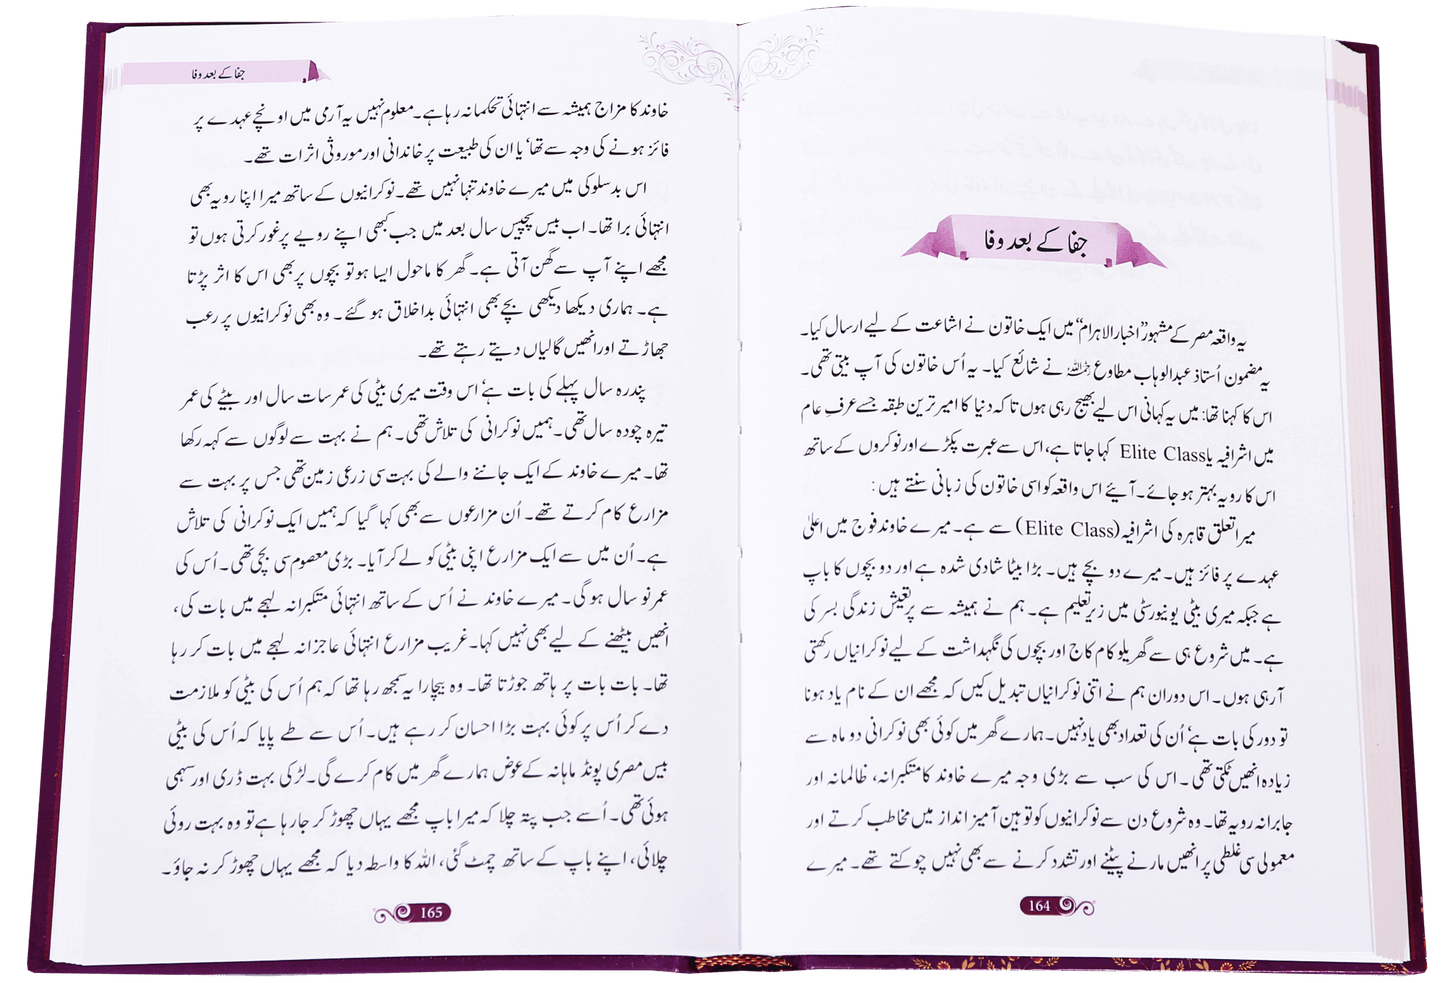 جفا کے بعد وفا
یہ واقعہ مصر کے مشہور ”اخبار الاہرام“ میں ایک خاتون نے اشاعت کے لیے ارسال کیا۔
یہ مضمون اُستاذ عبدالوہاب مطاوع رحمہ اللہ نے شائع کیا۔ یہ اُس خاتون کی آپ بیتی تھی۔
اس کا کہنا تھا: میں یہ کہانی اس لیے بھیج رہی ہوں تاکہ دنیا کا امیر ترین طبقہ جسے عرفِ عام
میں اشرافیہ یا Elite Class کہا جاتا ہے، اس سے عبرت پکڑے اور نوکروں کے ساتھ
اس کا رویہ بہتر ہو جائے۔ آیئے اس واقعہ کو اسی خاتون کی زبانی سنتے ہیں:
میرا تعلق قاہرہ کی اشرافیہ (Elite Class) سے ہے۔ میرے خاوند فوج میں اعلیٰ
عہدے پر فائز ہیں۔ میرے دو بچے ہیں۔ بڑا بیٹا شادی شدہ ہے اور دو بچوں کا باپ
ہے جبکہ میری بیٹی یونیورسٹی میں زیر تعلیم ہے۔ ہم نے ہمیشہ سے پر تعیش زندگی بسر کی
ہے۔ میں شروع ہی سے گھریلو کام کاج اور بچوں کی نگہداشت کے لیے نوکرانیاں رکھتی
آرہی ہوں۔ اس دوران ہم نے اتنی نوکرانیاں تبدیل کیں کہ مجھے ان کے نام یاد ہونا
تو دور کی بات ہے‘ اُن کی تعداد بھی یاد نہیں۔ ہمارے گھر میں کوئی بھی نوکرانی دو ماہ سے
زیادہ انھیں ٹکتی تھی۔ اس کی سب سے بڑی وجہ میرے خاوند کا متکبرانہ، ظالمانہ اور
جابرانہ رویہ تھا۔ وہ شروع دن سے نوکرانیوں کو توہین آمیز انداز میں مخاطب کرتے اور
معمولی سی غلطی پر انھیں مارنے پیٹنے اور تشدد کرنے سے بھی نہیں چوکتے تھے۔ میرے
164
جفا کے بعد وفا
خاوند کا مزاج ہمیشہ سے انتہائی تحکمانہ رہا ہے۔ معلوم نہیں یہ آرمی میں اونچے عہدے پر
فائز ہونے کی وجہ سے تھا‘ یا ان کی طبیعت پر خاندانی اور موروثی اثرات تھے۔
اس بدسلوکی میں میرے خاوند تنہا نہیں تھے۔ نوکرانیوں کے ساتھ میرا اپنا رویہ بھی
انتہائی برا تھا۔ اب بیس پچیس سال بعد میں جب کبھی اپنے رویے پر غور کرتی ہوں تو
مجھے اپنے آپ سے گھن آتی ہے۔ گھر کا ماحول ایسا ہو تو بچوں پر بھی اس کا اثر پڑتا
ہے۔ ہماری دیکھا دیکھی بچے بھی انتہائی بداخلاق ہو گئے۔ وہ بھی نوکرانیوں پر رعب
جھاڑتے اور انھیں گالیاں دیتے رہتے تھے۔
پندرہ سال پہلے کی بات ہے‘ اس وقت میری بیٹی کی عمر سات سال اور بیٹے کی عمر
تیرہ چودہ سال تھی۔ ہمیں نوکرانی کی تلاش تھی۔ ہم نے بہت سے لوگوں سے کہہ رکھا
تھا۔ میرے خاوند کے ایک جاننے والے کی بہت سی زرعی زمین تھی جس پر بہت سے
مزارع کام کرتے تھے۔ اُن مزارعوں سے بھی کہا گیا کہ ہمیں ایک نوکرانی کی تلاش
ہے۔ اُن میں سے ایک مزارع اپنی بیٹی کو لے کر آیا۔ بڑی معصوم سی بچی تھی۔ اُس کی
عمر نو سال ہو گی۔ میرے خاوند نے اُس کے ساتھ انتہائی متکبرانہ لہجے میں بات کی،
انھیں بیٹھنے کے لیے بھی نہیں کہا۔ غریب مزارع انتہائی عاجزانہ لہجے میں بات کر رہا
تھا۔ بات بات پر ہاتھ جوڑتا تھا۔ وہ بیچارا یہ سمجھ رہا تھا کہ ہم اُس کی بیٹی کو ملازمت
دے کر اُس پر کوئی بہت بڑا احسان کر رہے ہیں۔ اُس سے طے پایا کہ اُس کی بیٹی
بیس مصری پونڈ ماہانہ کے عوض ہمارے گھر میں کام کرے گی۔ لڑکی بہت ڈری اور سہمی
ہوئی تھی۔ اُسے جب پتہ چلا کہ میرا باپ مجھے یہاں چھوڑ کر جا رہا ہے تو وہ بہت روئی
چلائی، اپنے باپ کے ساتھ چمٹ گئی، اللہ کا واسطہ دیا کہ مجھے یہاں چھوڑ کر نہ جاؤ۔
165